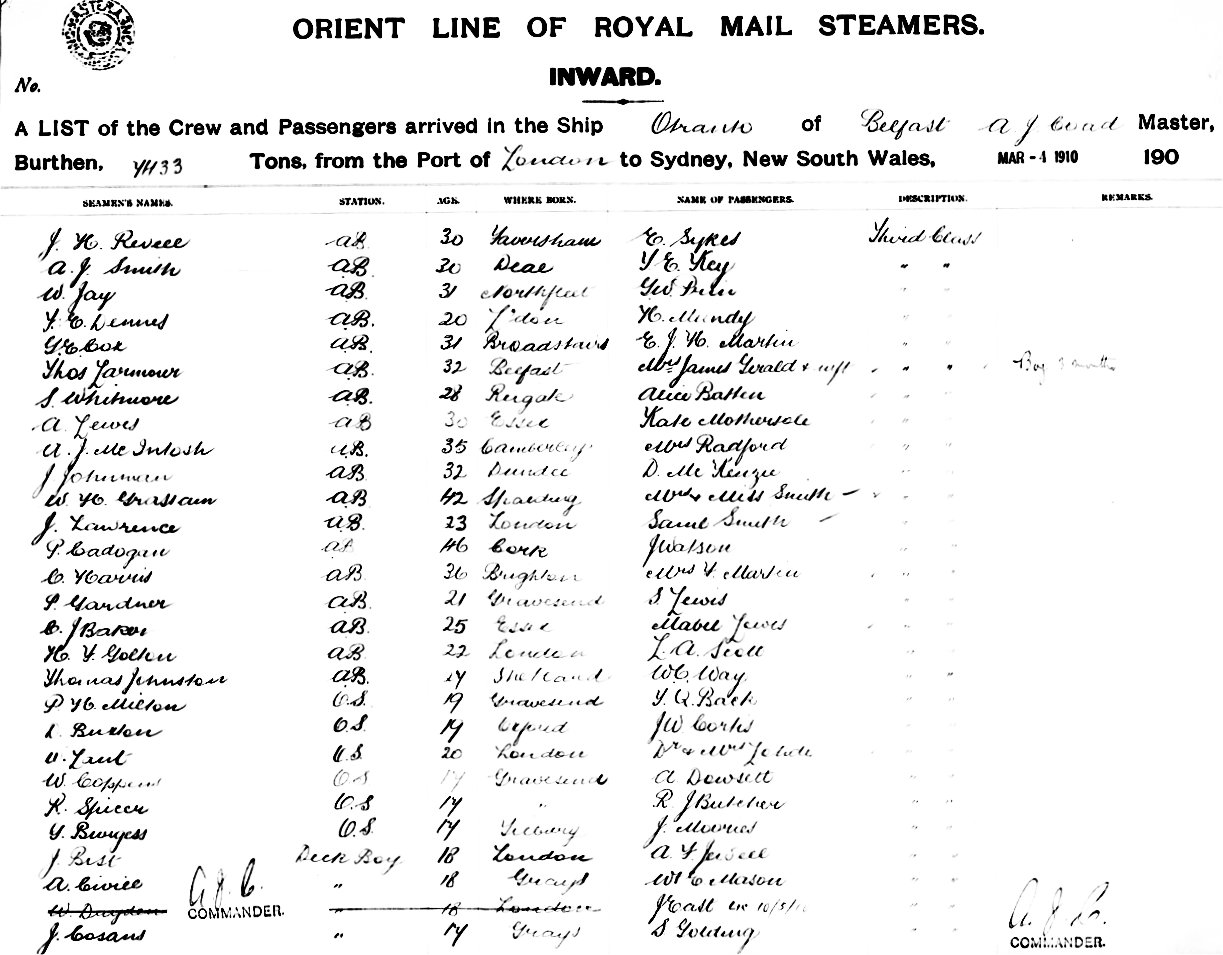 ORIENT LINE OF ROYAL MAIL STEAMERS.
INWARD.
No.
A LIST of the Crew and Passengers arrived in the Ship Otranto of Belfast A J Coad Master,
Burthen, 7433 Tons, from the Port of London to Sydney, New South Wales, MAR - 4 1910 190
SEAMEN'S NAMES. STATION. AGE. WHERE BORN. NAME OF PASSENGERS. DESCRIPTION. REMARKS.
J. H. Revell AB. 30 Faversham E. Sykes Third Class
A. J. Smith AB. 30 Deal F E. Key " "
W. Jay AB. 31 Northfleet GW " "
F. E. Dennes AB. 20 L'don H. Mundy " "
G E Cox AB. 31 Broadstairs E. J. H. Martin " "
Thos Larmour AB. 32 Belfast Mrs James Gerald + wife " " Boy 3 months
S. Whitmore AB. 28 Reigate Alice Batten " "
A. Lewis AB 30 Essex Kate Mothersole " "
A. J. Mc Intosh AB. 35 Camberley Mrs Radford " "
J Johnman AB. 32 Dundee D. Mc Kenzie " "
W. H. Grassam AB. 42 Spalding Mrs + Miss Smith - " "
J. Lawrence AB. 23 London Saml Smith - " "
P. Cadogan AB 46 Cork J Watson " "
C. Harris AB. 36 Brighton Mrs F. Martin " "
P. Gardner AB. 21 Gravesend S. Lewis " "
C. J Baker AB. 25 Essex Mabel Lewis " "
H. F. Golten AB. 22 London L. A. Scott " "
Thomas Johnston AB. 17 Shetland W C. Way " "
P H. Milton O.S. 19 Gravesend F. Q. Back " "
Buxton O.S. 17 Oxford J W Corks " "
Lent O.S 20 London Dr + Mrs " "
W. Coppens O.S 17 Gravesend A Dowsett " "
R. Spicer O.S 17 " R. J Butcher " "
F. Burgess O.S. 17 Tilbury J. " "
J. Best Deck Boy 18 London A. F Jewell " "
A. Civill " 18 Grays W E Mason " "
A. J. C.
COMMANDER.
W. Draydon " 18 London J East " "
J. Cosans " 17 Grays S Golding " "
A. J. C.
COMMANDER.